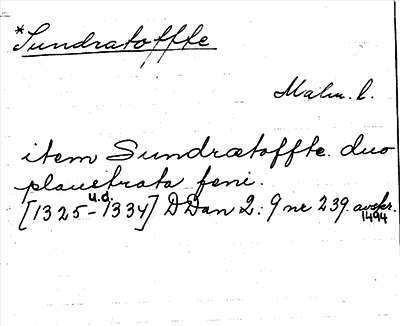 *Sundratoffte
Malm. l.
item Sundrætoffte. duo
plaustrata feni.
[1325 - u.å. 1334] DDan 2: 9 nr 239. avskr. 1494